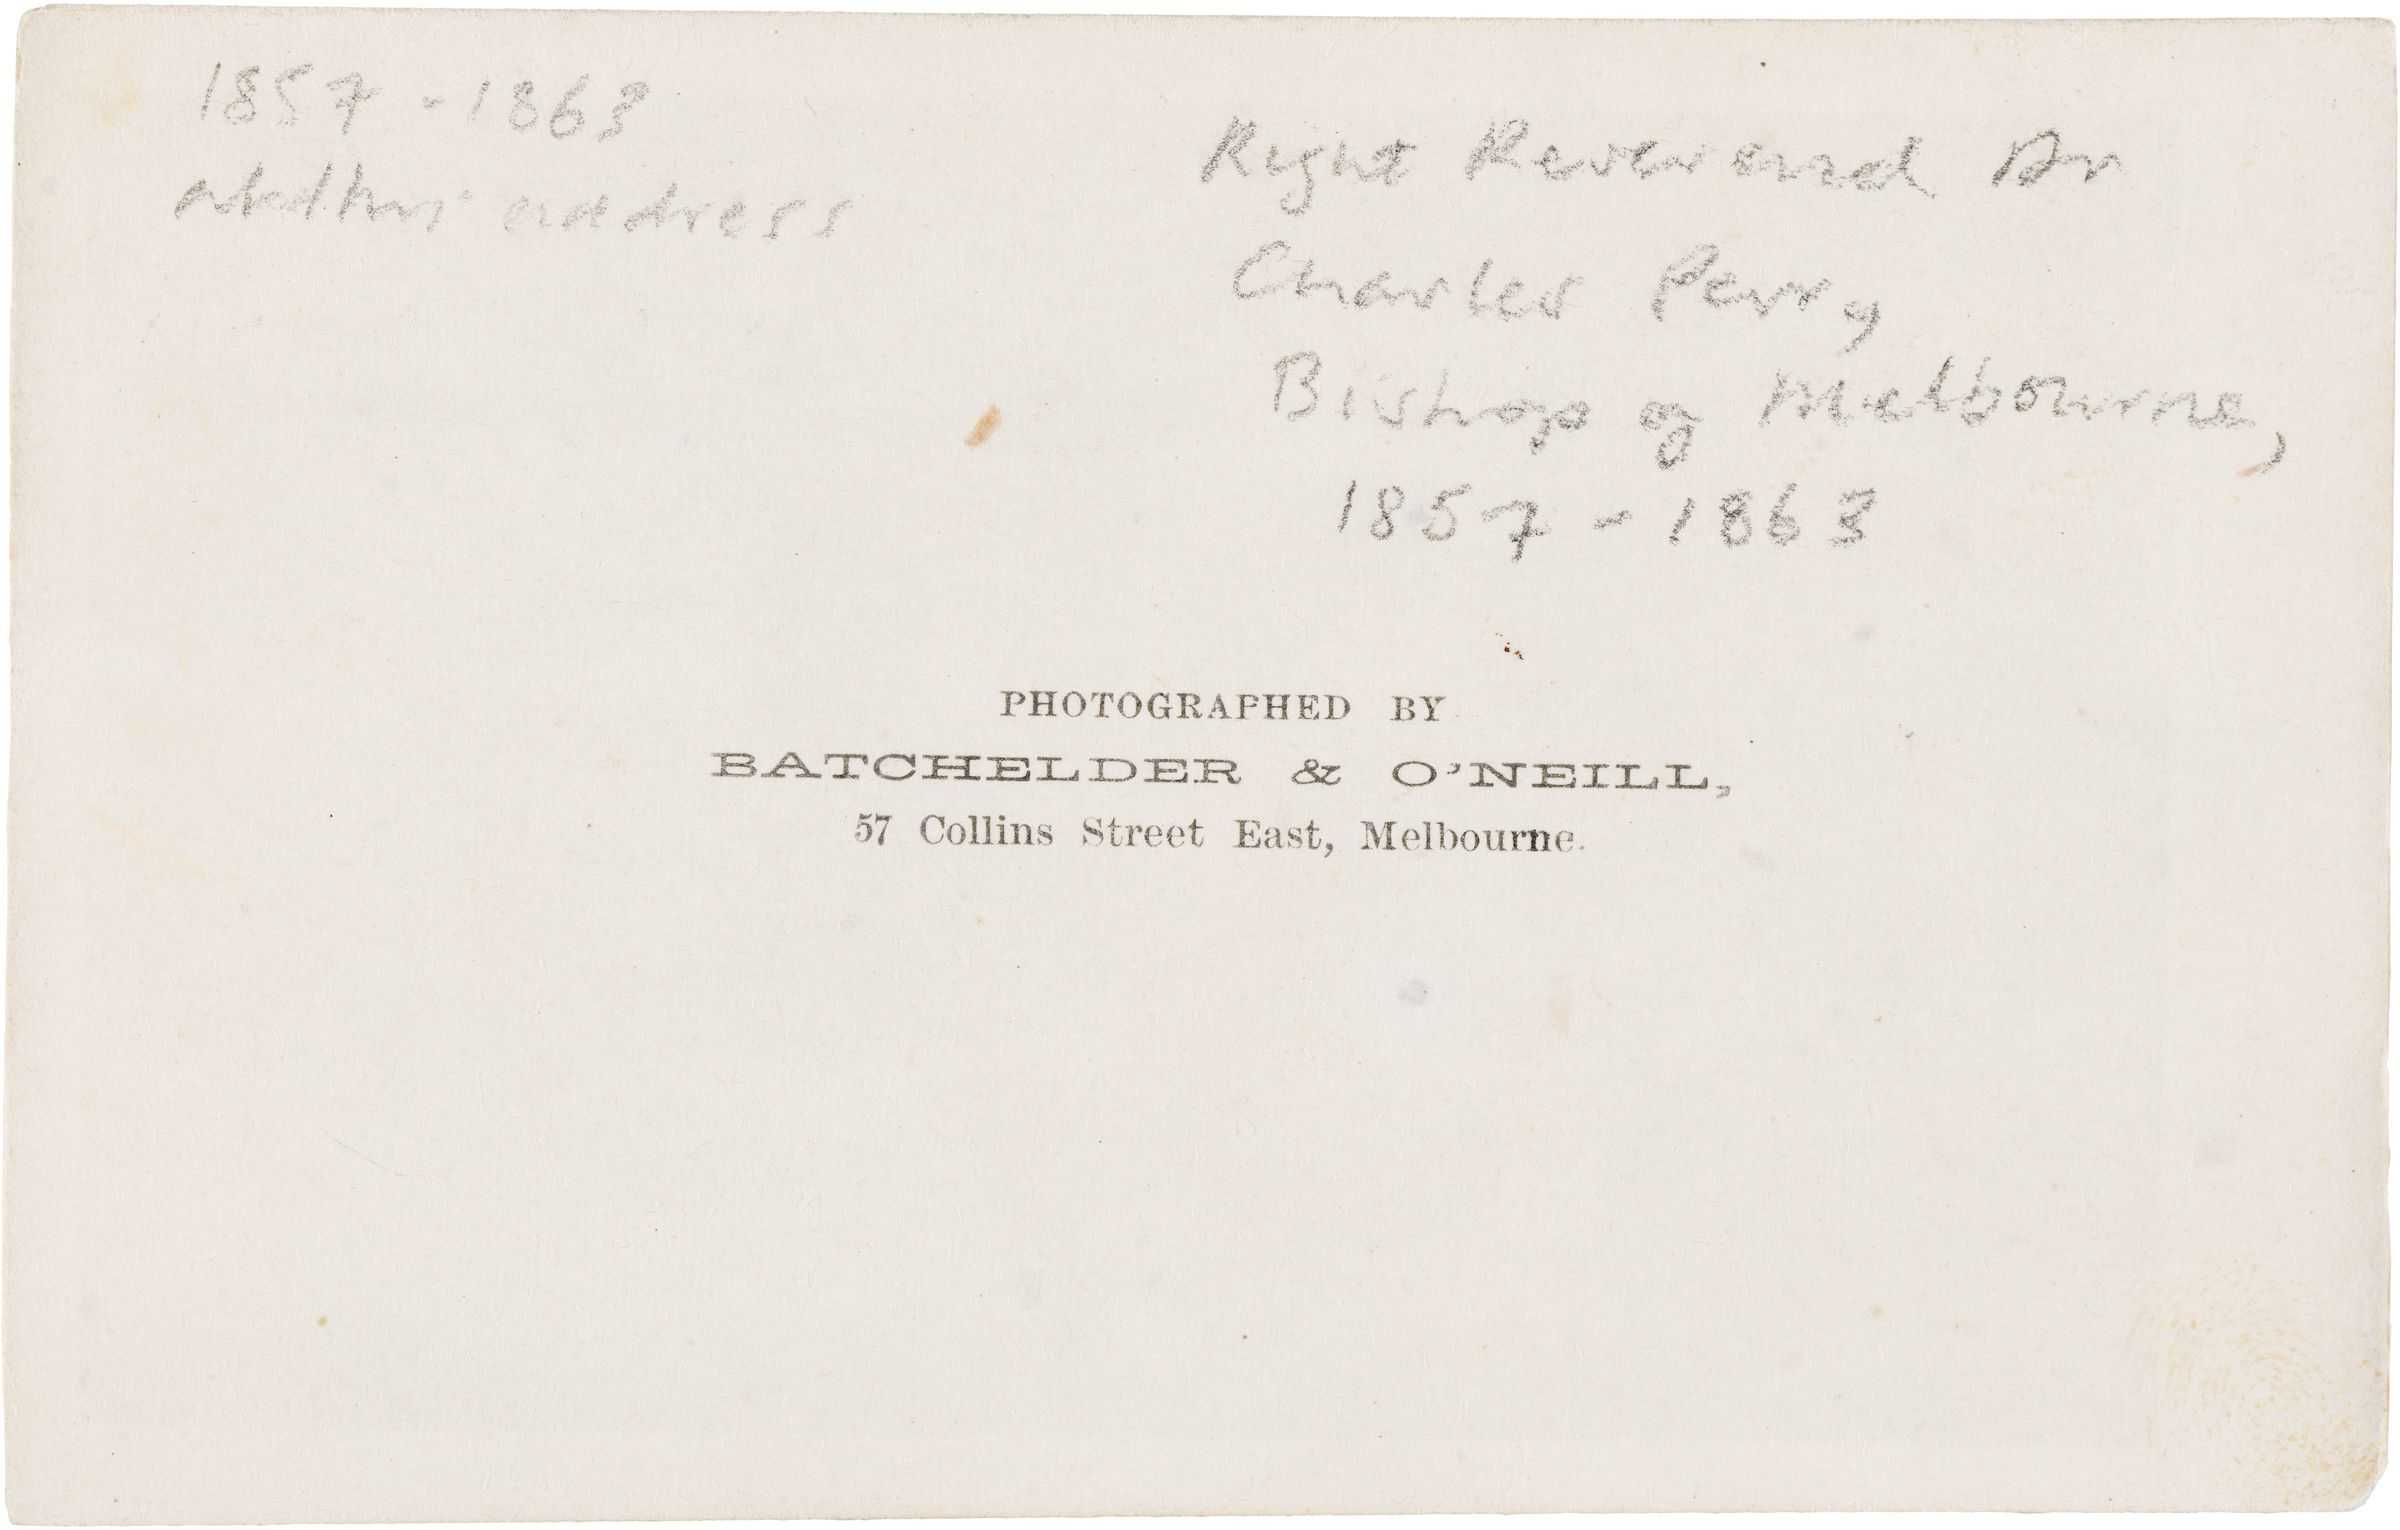 1857 - 1863
at this address
Right Reverend Dr
Charles Perry
Bishop of Melbourne,
1857 - 1863
PHOTOGRAPHED BY
BATCHELDER & O'NEILL,
57 Collins Street East, Melbourne.